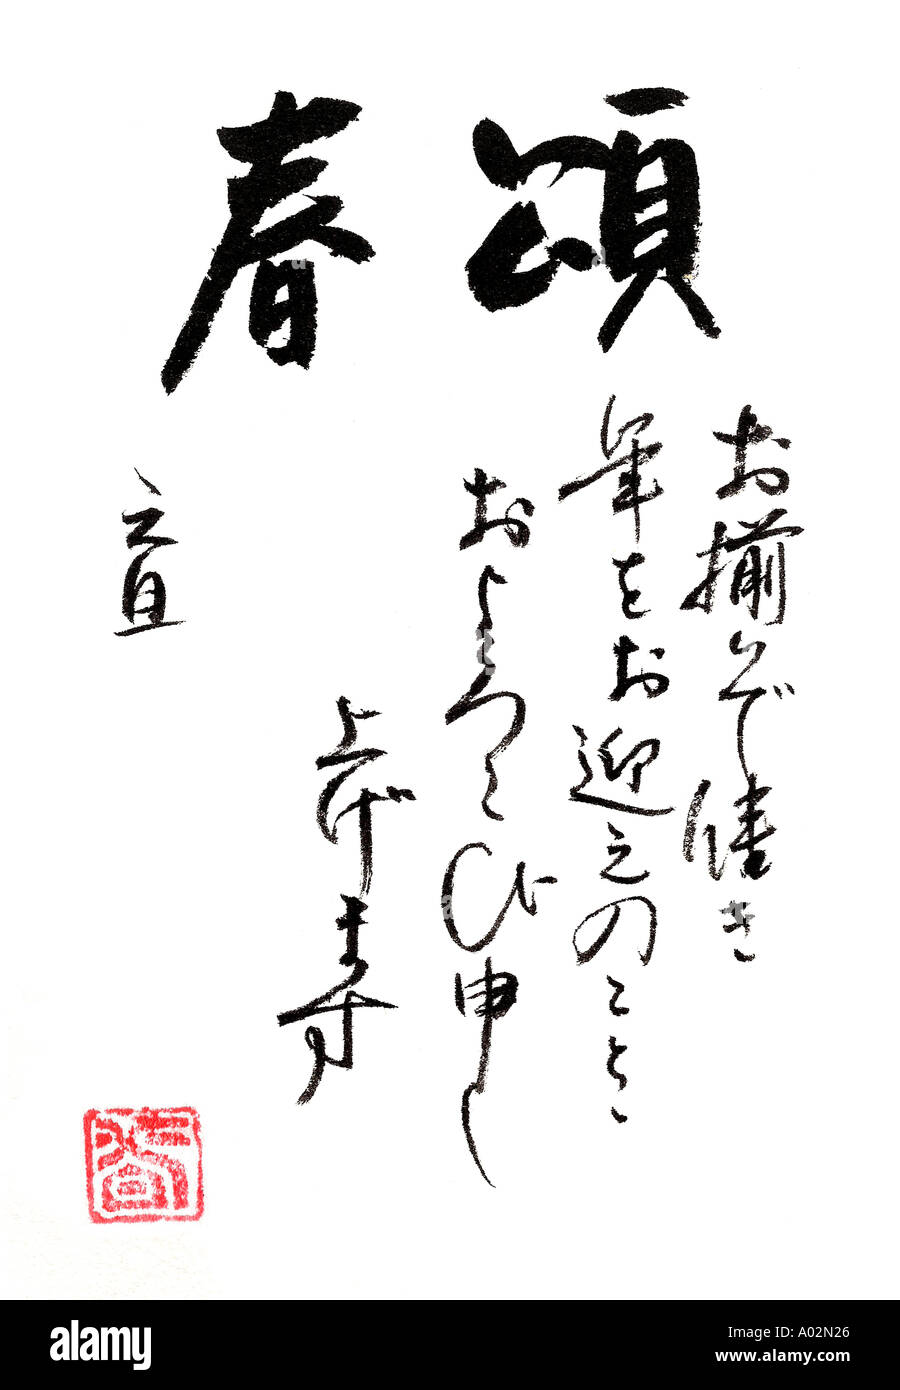 頌春
お揃いで
年をお迎えのこと
およろこび申し
上げます
元旦
alamy
Image ID: A02N26
www.alamy.com